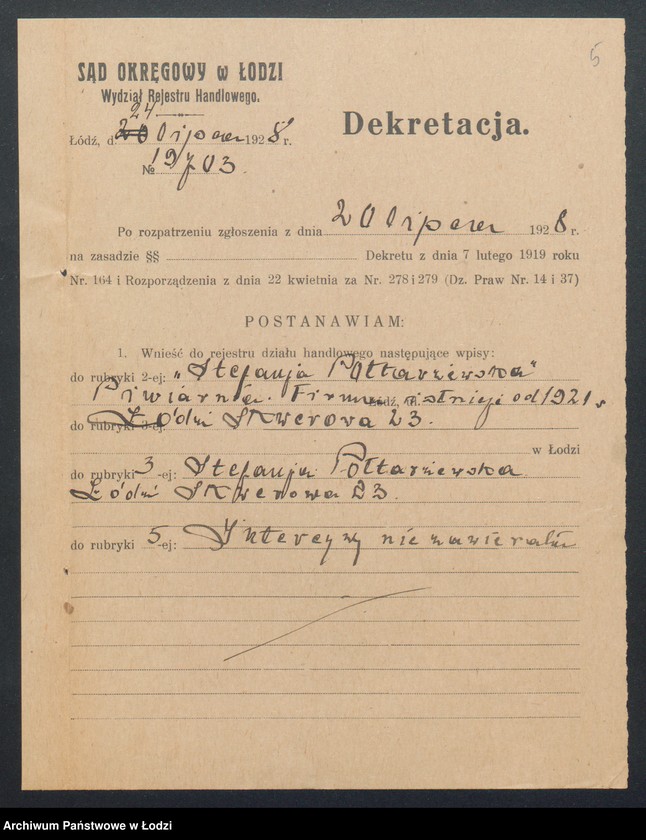 5
SĄD OKRĘGOWY w ŁODZI
Wydział Rejestru Handlowego.
24
Łódź, d. 20 lipca 1928 r.
№ 19703
Dekretacja.
Po rozpatrzeniu zgłoszenia z dnia 20 lipca 1928 r.
na zasadzie §§ Dekretu z dnia 7 lutego 1919 roku
Nr. 164 i Rozporządzenia z dnia 22 kwietnia za Nr. 278 i 279 (Dz. Praw Nr. 14 i 37)
POSTANAWIAM:
1. Wnieść do rejestru działu handlowego następujące wpisy:
do rubryki 2-ej: „Stefanja Półtarzewska"
Piwiarnia. Firma istnieje od 1921 r
Łódź,
do rubryki 3-ej: Łódź Skwerowa 23.
w Łodzi
do rubryki 3-ej: Stefanja Półtarzewska
Łódź Skwerowa 23.
do rubryki 5-ej: Intercyzy nie zawierała
Archiwum Państwowe w Łodzi